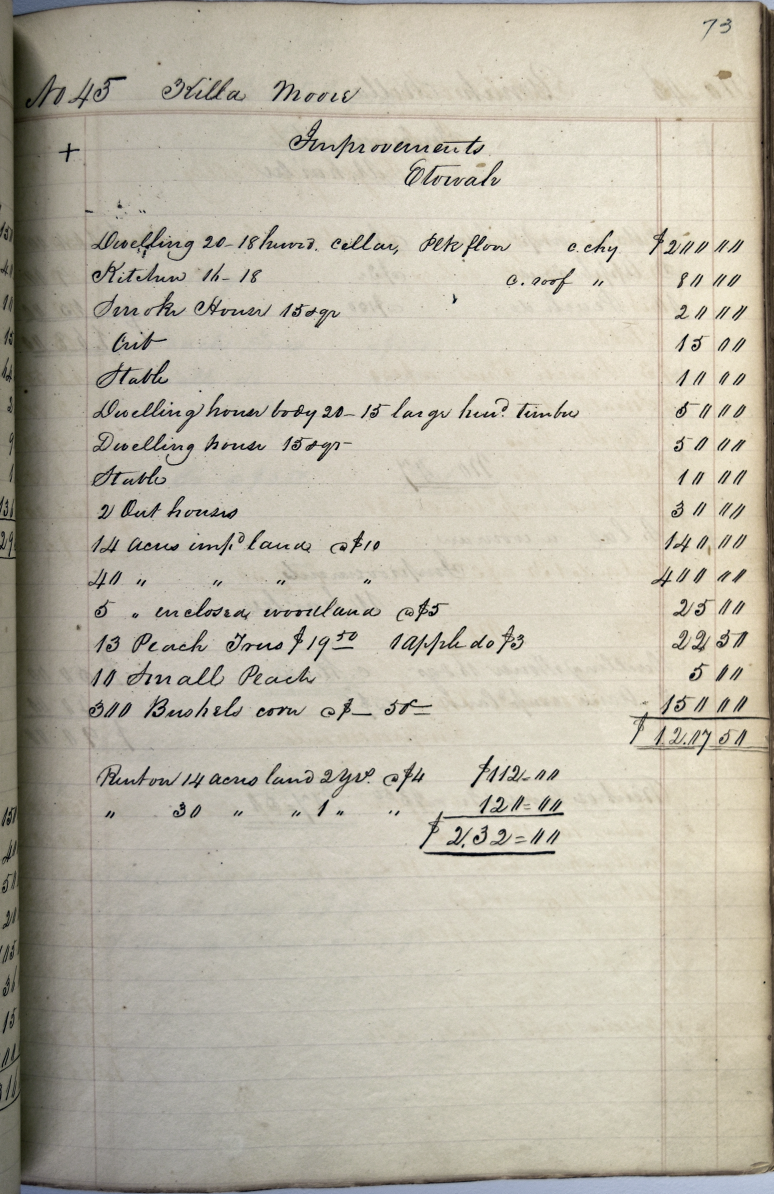 73
No 45 Killa Moore
+ Improvements
Etowah
Dwelling 20-18 hewd. cellar, Plk floor c. chy $200 00
Kitchen 16-18 c. roof " 80 00
Smoke House 15 sqr 20 00
Crib 15 00
Stable 10 00
Dwelling house body 20-15 large hewd. timber 50 00
Dwelling house 15 sqr 50 00
Stable 10 00
2 Out houses 30 00
14 acres impd land @ $10 140 00
40 " " " " 400 00
5 " enclosed woodland @ $5 25 00
13 Peach Trees $19 50 1 apple do $3 22 50
10 Small Peach 5 00
300 Bushels corn @ $ — 50c 150 00
$ 1207 50
Rent on 14 acres land 2 yrs. @ $4 $112=00
" 30 " " 1 " " 120=00
$ 232=00